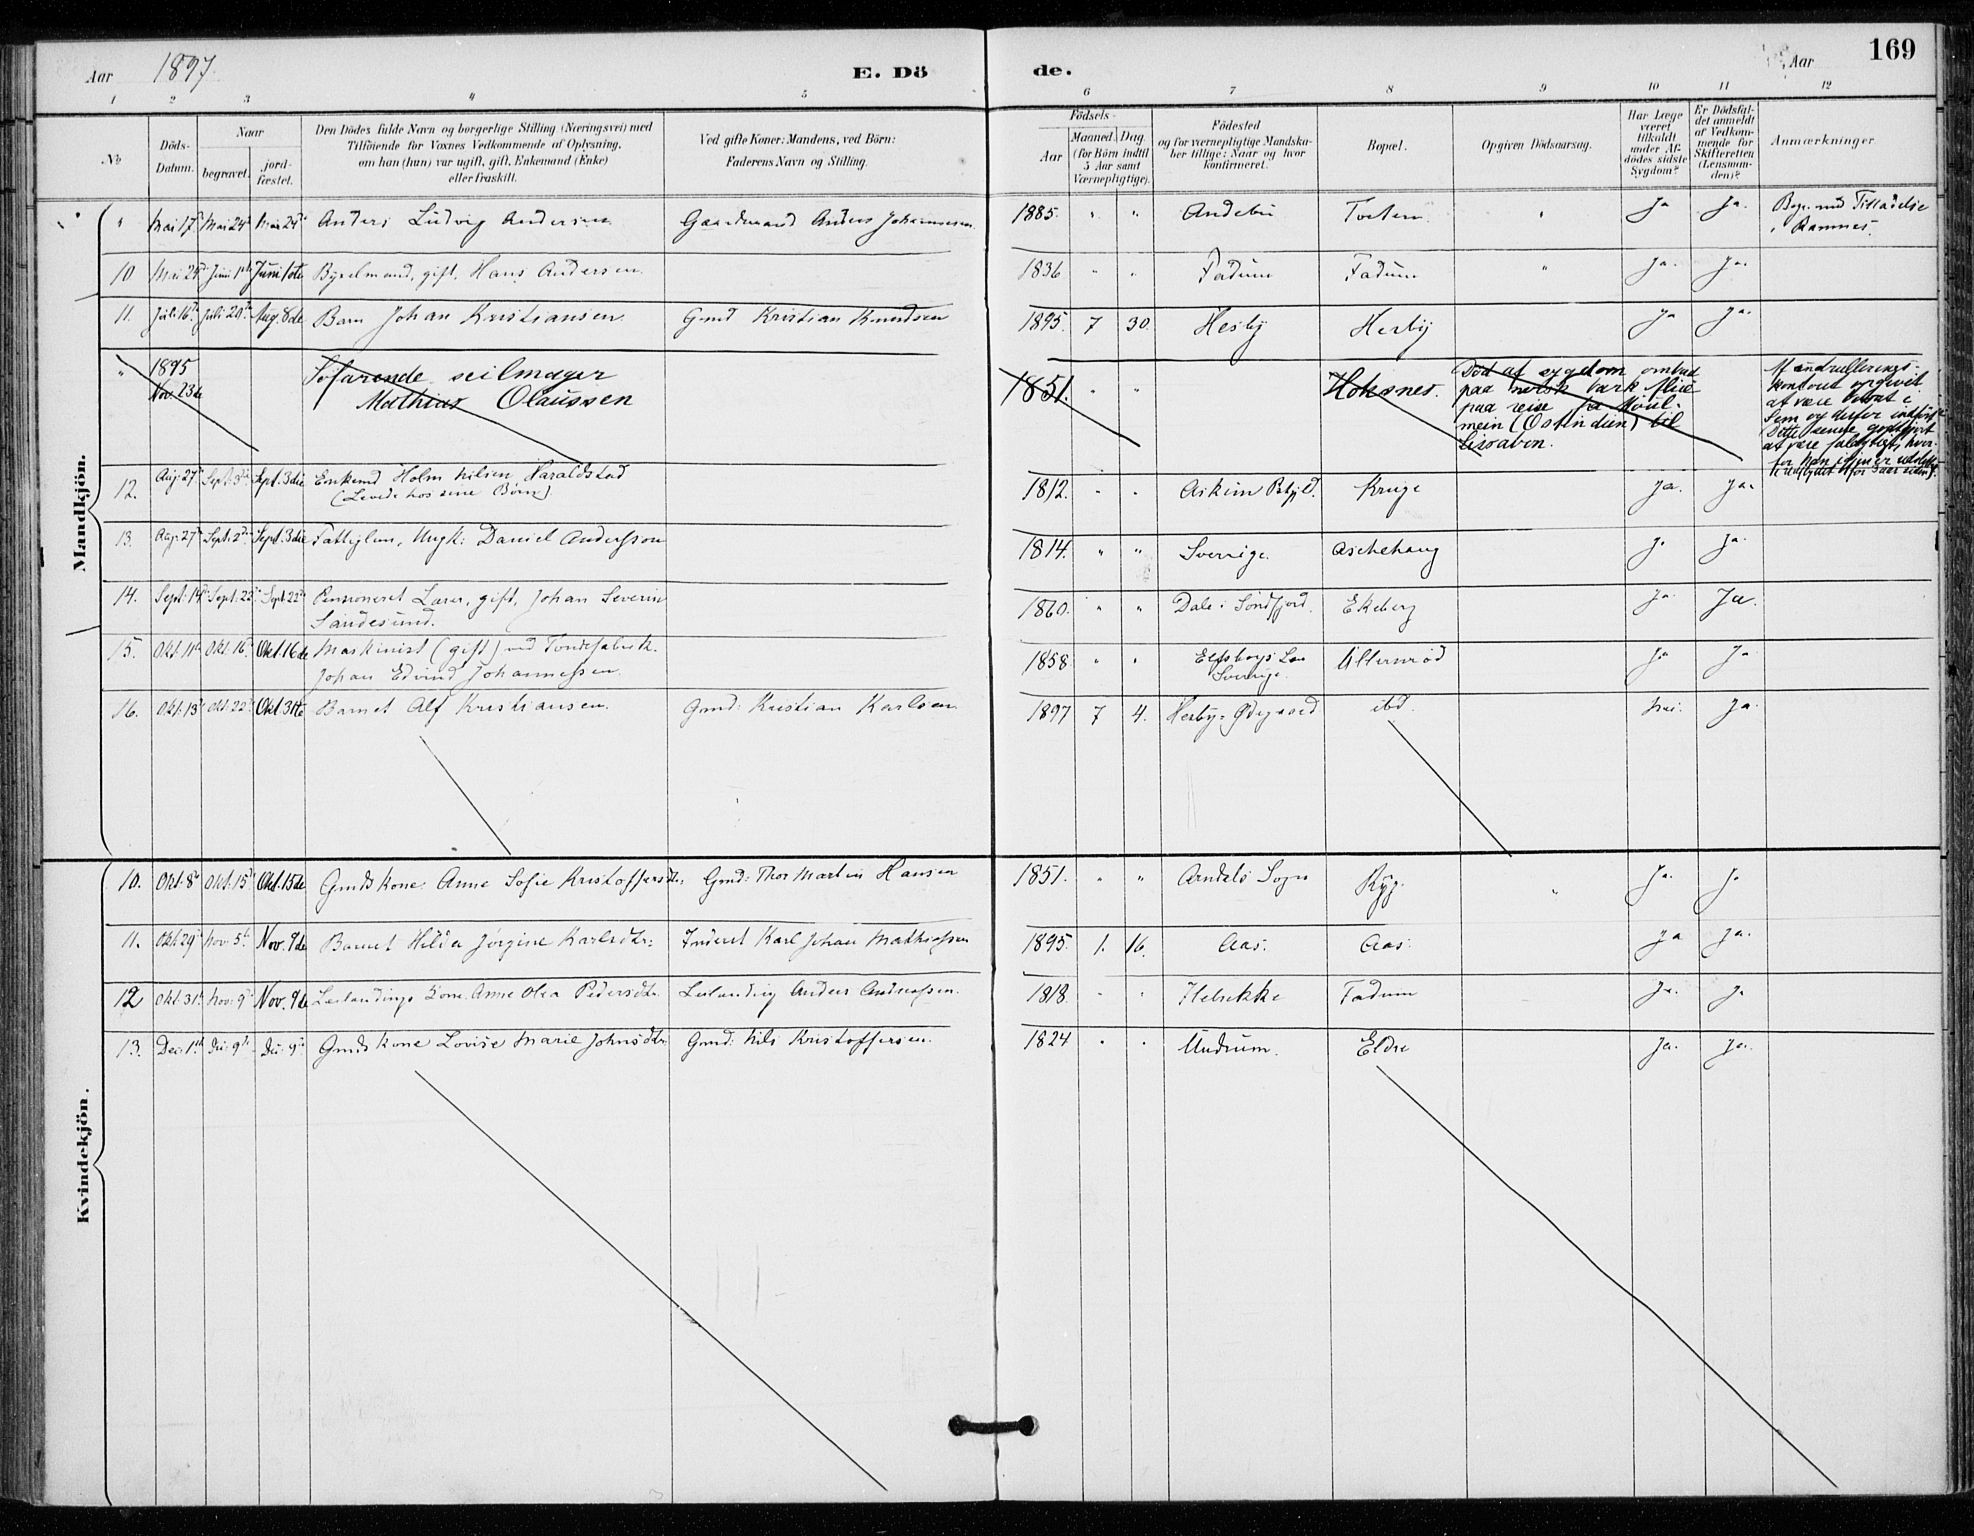 Aar 1897. E. Dö de. Aar 169
1 2 3 4 5 6 7 8 9 10 11 12
No
Döds-Datum.
Naar
begravet.
jord-fæstet.
Den Dödes fulde Navn og borgerlige Stilling (Næringsvei) med
Tilföiende for Voxnes Vedkommende af Oplysning,
om han (hun) var ugift, gift, Enkemand (Enke)
eller fraskilt.
Ved gifte Koner: Mandens, ved Börn:
Faderens Navn og Stilling.
Födsels-
Aar
Maaned. Dag.
(for Börn indtil
5 Aar samt
Værnepligtige).
Födested
og for værnepligtige Mandska-
ber tillige: Naar og hvor
konfirmeret.
Bopæl.
Opgiven Dödsaarsag.
Har Læge
været
tilkaldt
under Af-
dödes sidste
Sygdom?
Er Dödsfal-
det anmeldt
af Vedkom-
mende for
Skifteretten
(Lensman-
den)?
Anmærkninger
Mandkjön.
" Mai 17de Mai 24de Mai 24de Anders Ludvig Andersen Gaardmand Anders Johannesen 1885. " " Andebu Tveten " Ja Ja. Begr. med Tilladelse
i Ramnes.
10 Mai 24de Juni 1ste Juni 1ste Byselmand, gift, Hans Andersen. 1836 " " Fadum Fadum " Ja. Ja.
11. Juli 16de Juli 20de Aug. 8de Barn Johan Kristiansen Gmd Kristian Knudsen 1895. 7 30. Hesby Hesby Ja Ja.
" 1895
Nov. 23de
Söfarende seilmager
Mathias Olaussen
1851. " "
Hoksnes.
Död af sygdom ombord
paa norsk bark Alice
paa reise fra Moul-
mein (Ostindien) til
Lissabon.
Mandrullerings-
kontoret opgivet
at være bosat i
Sem og derfor indfört
Dette senere godtgjort
at være
12. Aug 27de Sept. 3die Sept. 3die Enkemd Holm Nilsen Haraldstad
(Levede hos sine Börn)
1812. " " Askim Pstgjld. Kruge Ja. Ja.
13. Aug. 27de Sept. 2den Sept. 3die Fattiglem, Ungk: Daniel Andersson 1814. " " Sverrige. Aschehaug Ja Ja.
14. Sept. 14de Sept. 22de Sept. 22de Pensioneret Lærer, gift, Johan Severin
Sandesund.
1860. " " Dale i Söndfjord. Ekeberg Ja. Ja.
15. Okt. 11te Okt. 16de Okt. 16de Maskinist (gift) ved Töndefabrik.
Johan Edvind Johannessen.
1858 " " Elfsborgs Len
Sverrige. Ja Ja
16. Okt. 13de Okt. 22de Okt. 31te Barnet Alf Kristiansen. Gmd: Kristian Karlsen. 1897 7 4. Hesby-Ödegaard ibd. Nei. Ja.
Kvindekjön.
10. Okt. 8de Okt. 15de Okt. 15de Gmds kone. Anne Sofie Kristoffersdtr. Gmd: Thor Martin Hansen 1851. " " Arndals Sogn Ryg. " Ja. Ja
11. Okt. 29de Nov. 5te Nov. 9de Barnet Hilda Jörgine Karlsdtr: Inderst Karl Johan Mathiassen 1895. 1. 16. Aas. Aas. Ja Ja.
12 Okt. 31te Nov. 9de Nov. 9de Leilændings kone. Anne Olea Pedersdtr. Leilænding Anders Andreassen. 1818. " " Fadum Ja. Ja
13. Dec. 1ste Dec. 9de Dec. 9de Gmds kone Lovise Marie Johnsdtr. Gmd: Nils Kristoffersen. 1824 " " Undrum. Eldre Ja. Ja.